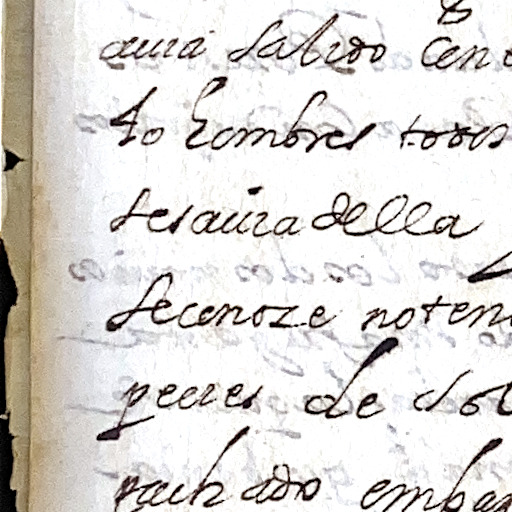 aura salido cen
to hombres todos
sesaura della
seconoze noten
peces de dos
rachado embar